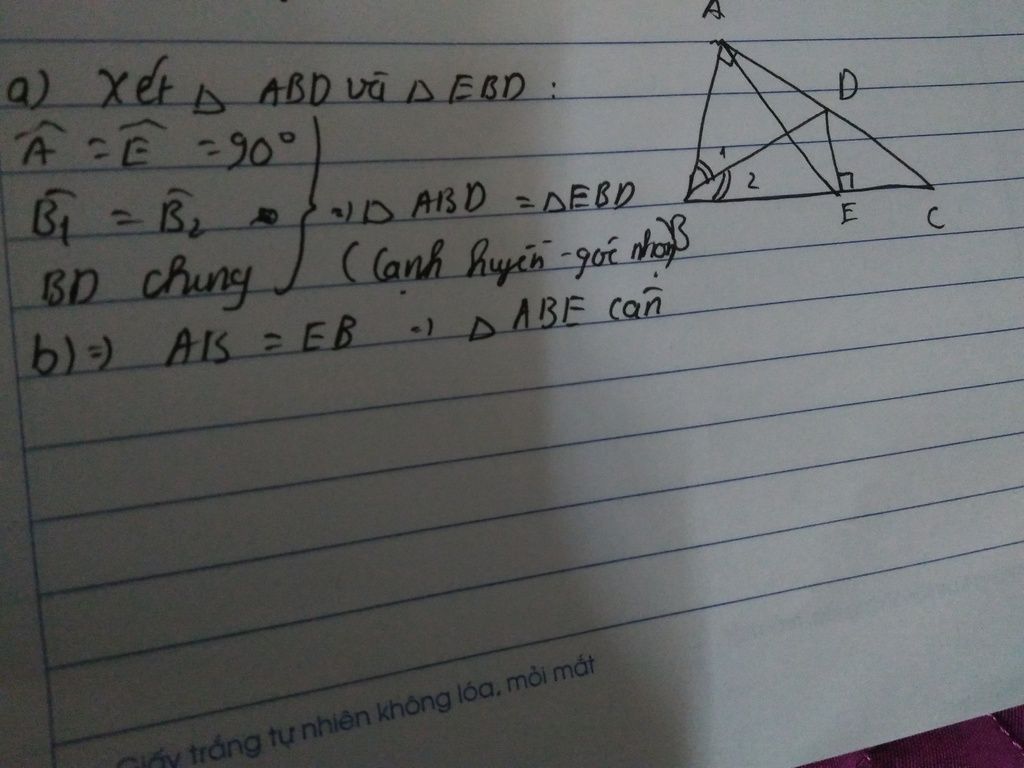 a) Xét Δ ABD và Δ EBD :
Â = Ê = 90°
B̂1 = B̂2
BD chung
=) Δ ABD = Δ EBD
(Cạnh huyền - góc nhọn)
b) =) AB = EB =) Δ ABE cân
A
D
1
2
B
E
C
Giấy trắng tự nhiên không lóa, mỏi mắt